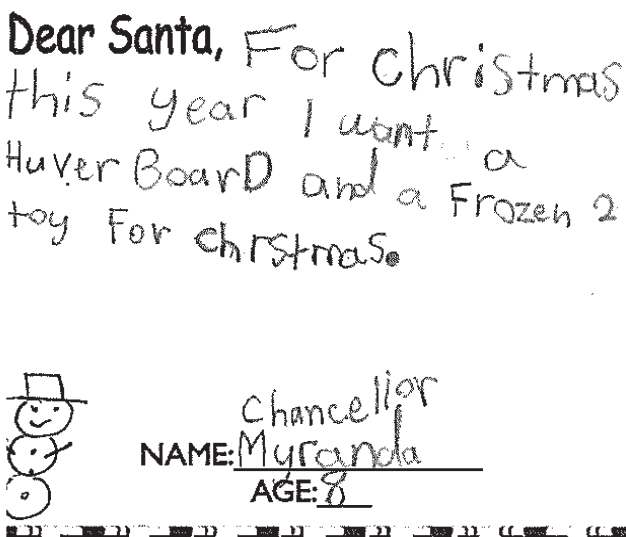 Dear Santa, For christmas
this year I want a
Huver BoarD and a Frozen 2
toy For chrstmas.
Chancellor
NAME: Myranda
AGE: 8